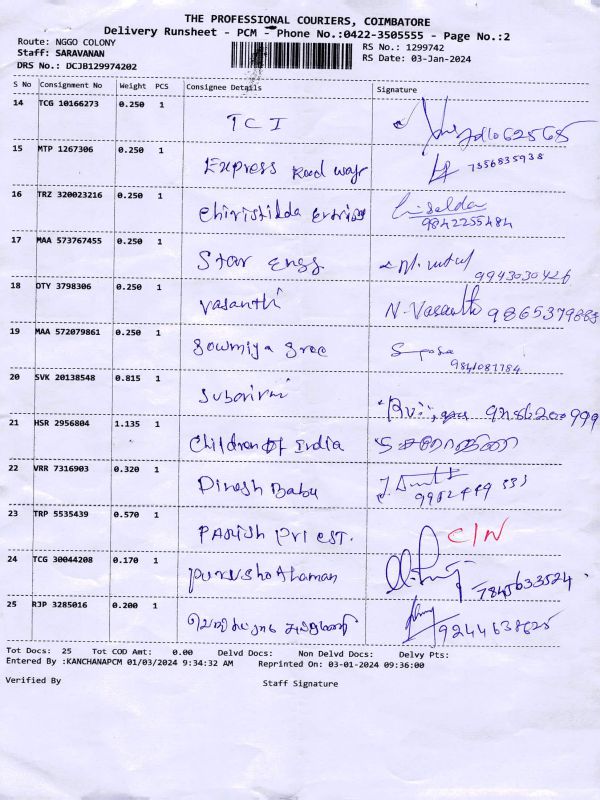 THE PROFESSIONAL COURIERS, COIMBATORE
Delivery Runsheet - PCM - Phone No.:0422-3505555 - Page No.:2
Route: NGGO COLONY
RS No.: 1299742
Staff: SARAVANAN
RS Date: 03-Jan-2024
DRS No.: DCJB129974202
S No Consignment No Weight PCS Consignee Details Signature
14 TCG 10166273 0.250 1
TCI
15 MTP 1267306 0.250 1 7356835938
Express Road ways
16 TRZ 320023216 0.250 1
9842255484
17 MAA 573767455 0.250 1
Star Engg 9943030426
18 DTY 3798306 0.250 1
Vasanthi N. Vasanthi 9865379883
19 MAA 572079861 0.250 1
Sowmiya Sree
20 SVK 20138548 0.815 1
21 HSR 2956804 1.135 1
Children of India
22 VRR 7316903 0.320 1
Dinesh Babu
23 TRP 5535439 0.570 1
PARISH PRIEST. C/N
24 TCG 30044208 0.170 1
Purushothaman 7845633524
25 RJP 3285016 0.200 1
9244638625
Tot Docs: 25 Tot COD Amt: 0.00 Delvd Docs: Non Delvd Docs: Delvy Pts:
Entered By :KANCHANAPCM 01/03/2024 9:34:32 AM Reprinted On: 03-01-2024 09:36:00
Verified By Staff Signature